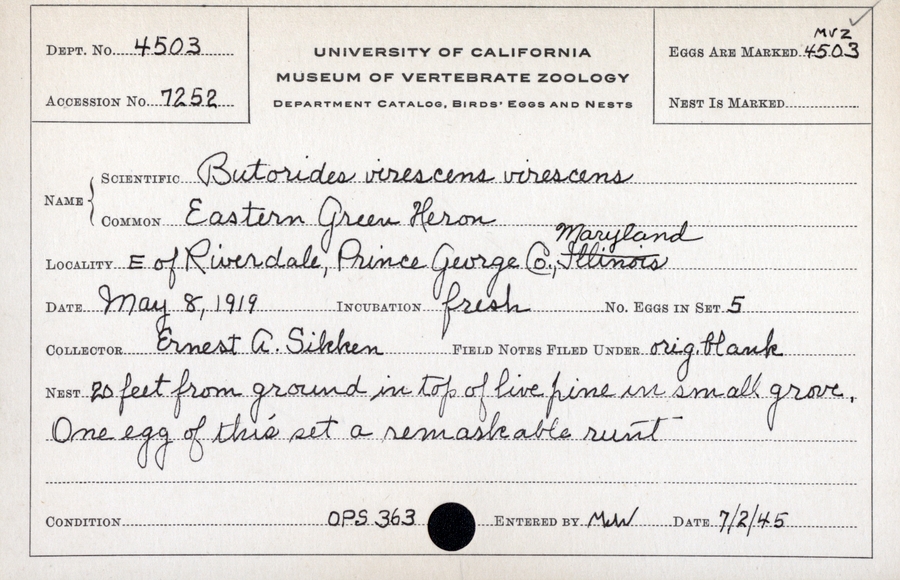 DEPT. NO. 4503
ACCESSION NO. 7252
UNIVERSITY OF CALIFORNIA
MUSEUM OF VERTEBRATE ZOOLOGY
DEPARTMENT CATALOG, BIRDS' EGGS AND NESTS
MVZ
EGGS ARE MARKED 4503
NEST IS MARKED
NAME
SCIENTIFIC Butorides virescens virescens
COMMON Eastern Green Heron
Maryland
LOCALITY E of Riverdale, Prince George Co., Illinois
DATE May 8, 1919 INCUBATION fresh NO. EGGS IN SET 5
COLLECTOR Ernest A. Sikken FIELD NOTES FILED UNDER orig. blank
NEST 20 feet from ground in top of live pine in small grove.
One egg of this set a remarkable runt
CONDITION OPS 363 ENTERED BY MWW DATE 7/2/45